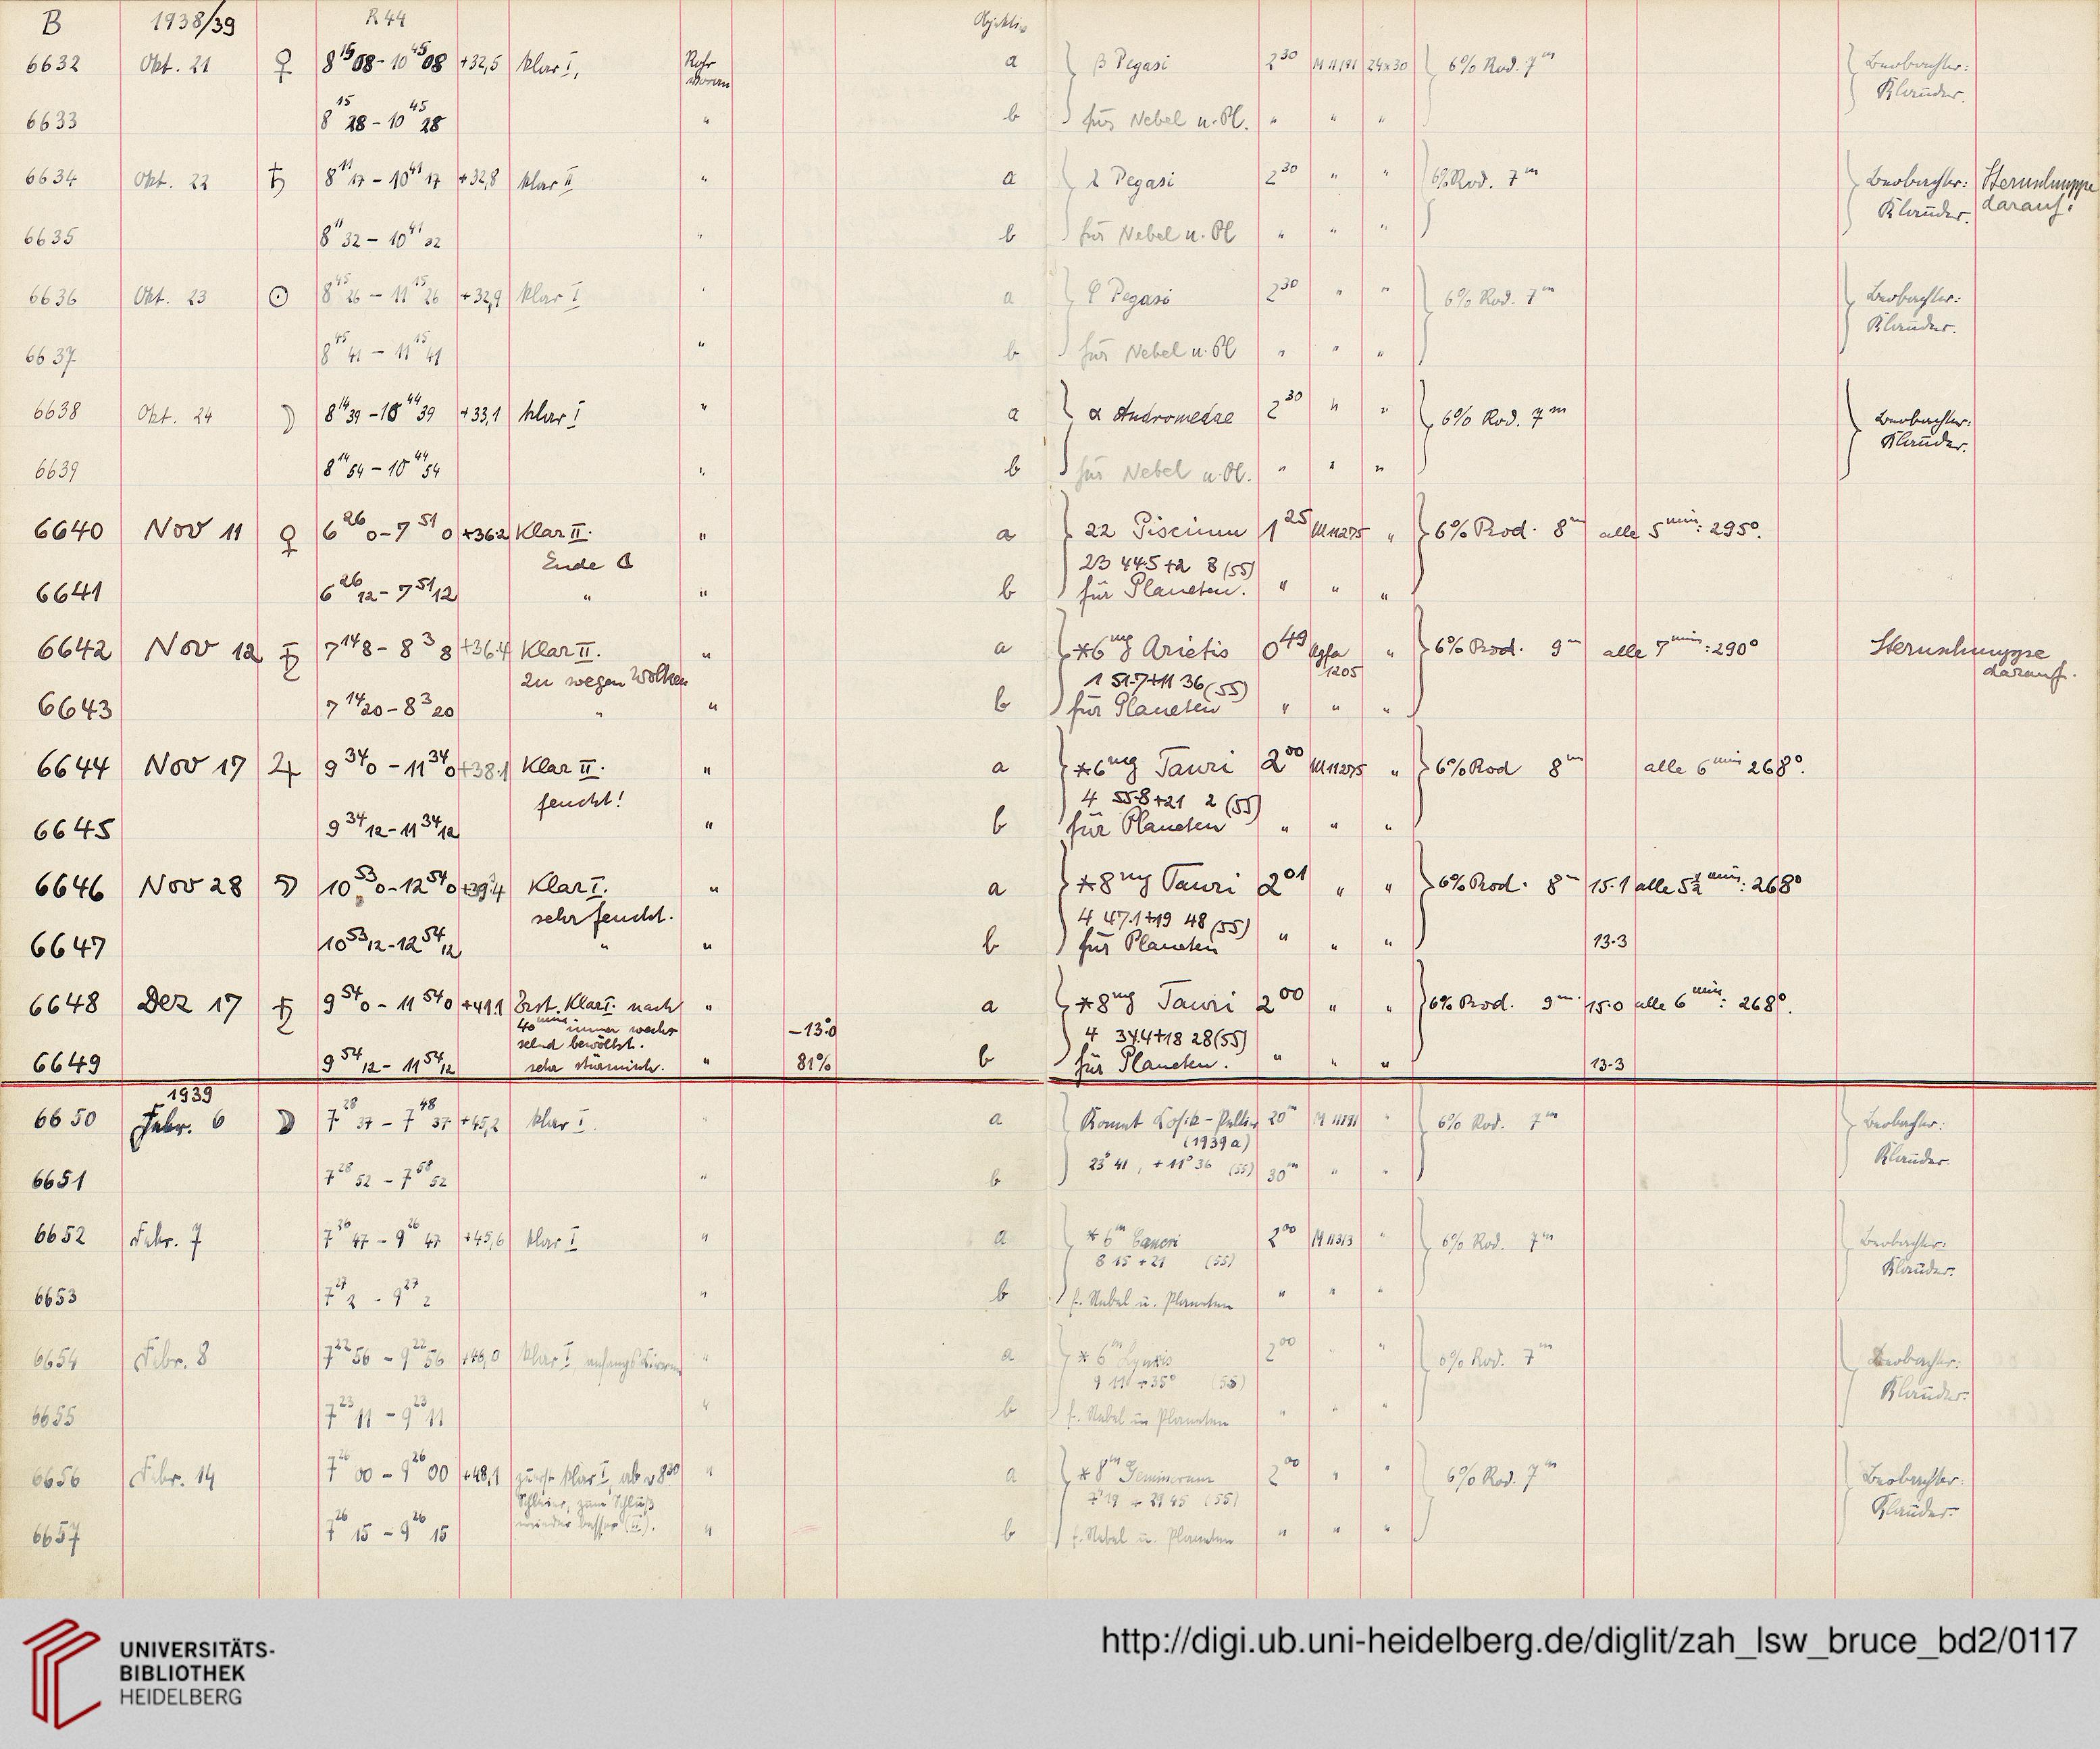 B 1938/39 R 44 Objektiv
6632 Okt. 21 ♀ 8 15 08 - 10 45 08 +32,5 klar I, Rohr a } β Pegasi 2 30 M 11191 24x30 } 6% Rod. 7 m } Beobachter:
Klauder.
6633 8 15 28 - 10 45 28 " b für Nebel u. Pl. " " "
6634 Okt. 22 ♄ 8 11 17 - 10 41 17 +32,8 klar II " a } λ Pegasi 2 30 " " } 6% Rod. 7 m } Beobachter: Sternschnuppe
Klauder. darauf!
6635 8 11 32 - 10 41 32 " b für Nebel u. Pl " " "
6636 Okt. 23 ☉ 8 45 26 - 11 15 26 +32,9 klar I " a } φ Pegasi 2 30 " " } 6% Rod. 7 m } Beobachter:
Klauder.
6637 8 45 41 - 11 15 41 " b für Nebel u. Pl " " "
6638 Okt. 24 ☽ 8 14 39 - 10 44 39 +33,1 klar I " a } α Andromedae 2 30 " " } 6% Rod. 7 m } Beobachter:
Klauder.
6639 8 14 54 - 10 44 54 " b für Nebel u. Pl. " " "
6640 Nov 11 ♀ 6 26 0 - 7 51 0 +36.2 Klar II. " a } 22 Piscium 1 25 M 11275 " } 6% Rod. 8 m alle 5 min: 295°.
Ende ☾ 23 44.5 +2 8 (55)
6641 6 26 12 - 7 51 12 " " b für Planeten. " " "
6642 Nov 12 ♄ 7 14 8 - 8 3 8 +36.4 Klar II. " a } *6 mg Arietis 0 49 Agfa " } 6% Rod. 9 m alle 7 min: 290° Sternschnuppe
zu wegen Wolken 1 51.7 +11 36 (55) 1205 darauf.
6643 7 14 20 - 8 3 20 " " b für Planeten " " "
6644 Nov 17 ♃ 9 34 0 - 11 34 0 +38.1 Klar II. " a } *6 mg Tauri 2 00 M 11275 " } 6% Rod 8 m alle 6 min 268°.
feucht! 4 55.8 +21 2 (55)
6645 9 34 12 - 11 34 12 " b für Planeten " " "
6646 Nov 28 ☽ 10 53 0 - 12 54 0 +39.4 Klar I. " a } *8 mg Tauri 2 01 " " } 6% Rod. 8 m 15.1 alle 5½ min: 268°
sehr feucht. 4 47.1 +19 48 (55)
6647 10 53 12 - 12 54 12 " " b für Planeten " " " 13.3
6648 Dez 17 ♄ 9 54 0 - 11 54 0 +41.1 Erst Klar I. nach " a } *8 mg Tauri 2 00 " " } 6% Rod. 9 m 15.0 alle 6 min: 268°.
40 min immer wech- -13.0 4 34.4 +18 28 (55)
selnd bewölkt.
6649 9 54 12 - 11 54 12 sehr stürmisch. " 81% b für Planeten. " " " 13.3
1939
6650 Febr. 6 ☽ 7 28 37 - 7 48 37 +45,2 klar I. " a } Komet Kosik-Peltier 20 m M 11191 " } 6% Rod. 7 m } Beobachter:
(1939a) Klauder.
23 h 41, +11° 36 (55)
6651 7 28 52 - 7 58 52 " b 30 m " "
6652 Febr. 7 7 26 47 - 9 26 47 +45,6 klar I " a } *6 m Cancri 2 00 M 11313 " } 6% Rod. 7 m } Beobachter:
8 15 +21 (55) Klauder.
6653 7 27 2 - 9 27 2 " b f. Nebel u. Planeten " " "
6654 Febr. 8 7 22 56 - 9 22 56 +46,0 klar I, anfangs " a } *6 m Lyncis 2 00 " " } 6% Rod. 7 m } Beobachter:
9 11 +35° (55) Klauder.
6655 7 23 11 - 9 23 11 " b f. Nebel u. Planeten " " "
6656 Febr. 14 7 26 00 - 9 26 00 +48,1 zuerst klar I, ab 8 30 " a } *8 m Geminorum 2 00 " " } 6% Rod. 7 m } Beobachter:
Schleier, zum Schluß 7 h 19 +21 45 (55) Klauder.
wieder besser (II).
6657 7 26 15 - 9 26 15 " b f. Nebel u. Planeten " " "
UNIVERSITÄTS-
BIBLIOTHEK
HEIDELBERG
http://digi.ub.uni-heidelberg.de/diglit/zah_lsw_bruce_bd2/0117